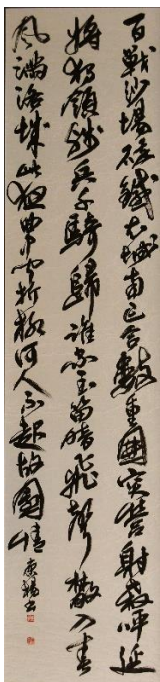 百戰沙場碎鐵衣城南已合數重圍突營射殺呼延
將獨領殘兵千騎歸誰家玉笛暗飛聲散入春
風滿洛城此夜曲中聞折柳何人不起故園情 書